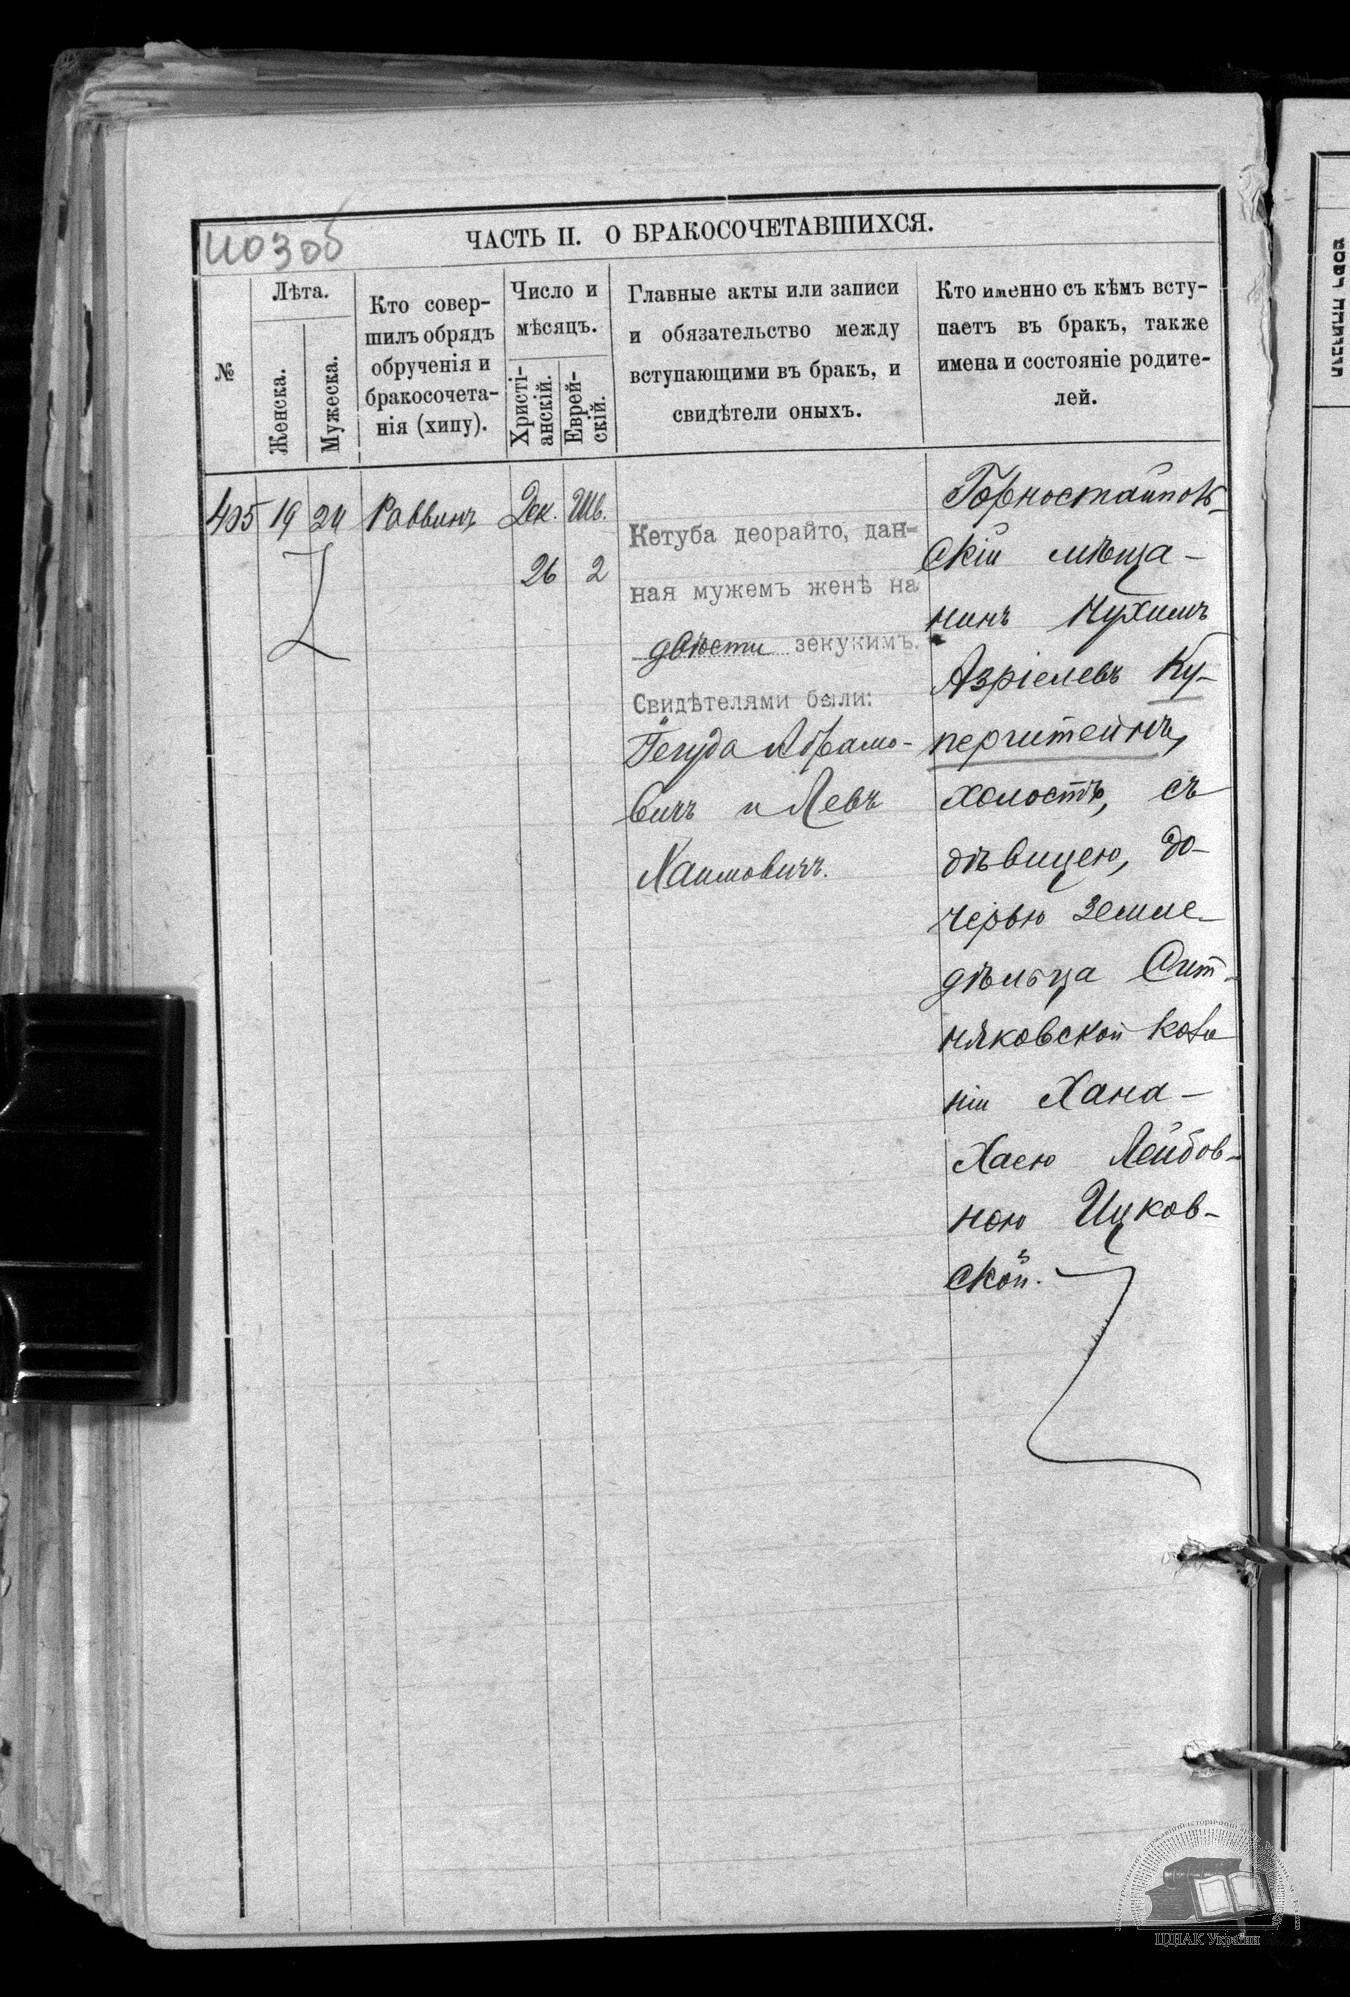 1103об
ЧАСТЬ II. О БРАКОСОЧЕТАВШИХСЯ.
№
Лѣта.
Женска.
Мужеска.
Кто совер-
шилъ обрядъ
обрученія и
бракосочета-
нія (хипу).
Число и
мѣсяцъ.
Христі-
анскій.
Еврей-
скій.
Главные акты или записи
и обязательство между
вступающими въ брак, и
свидѣтели оныхъ.
Кто именно съ кѣмъ всту-
паетъ въ бракъ, также
имена и состояніе родите-
лей.
405 19 24 Раввинъ Дек. Шв.
26 2
Кетуба деорайто, дан-
ная мужемъ женѣ на
двѣсти зекукимъ.
Свидѣтелями были:
Іегуда Абрамо-
вичъ и Левъ
Хаимовичъ.
Горностайпов-
скій мѣща-
нинъ Нухимъ
Азріелевъ Ку-
перштейнъ,
холостъ, съ
дѣвицею, до-
черью земле-
дѣльца Сит-
няковской коло
ніи Хана-
Хаею Лейбов-
ною Ицков-
ской.
ЦДІАК України